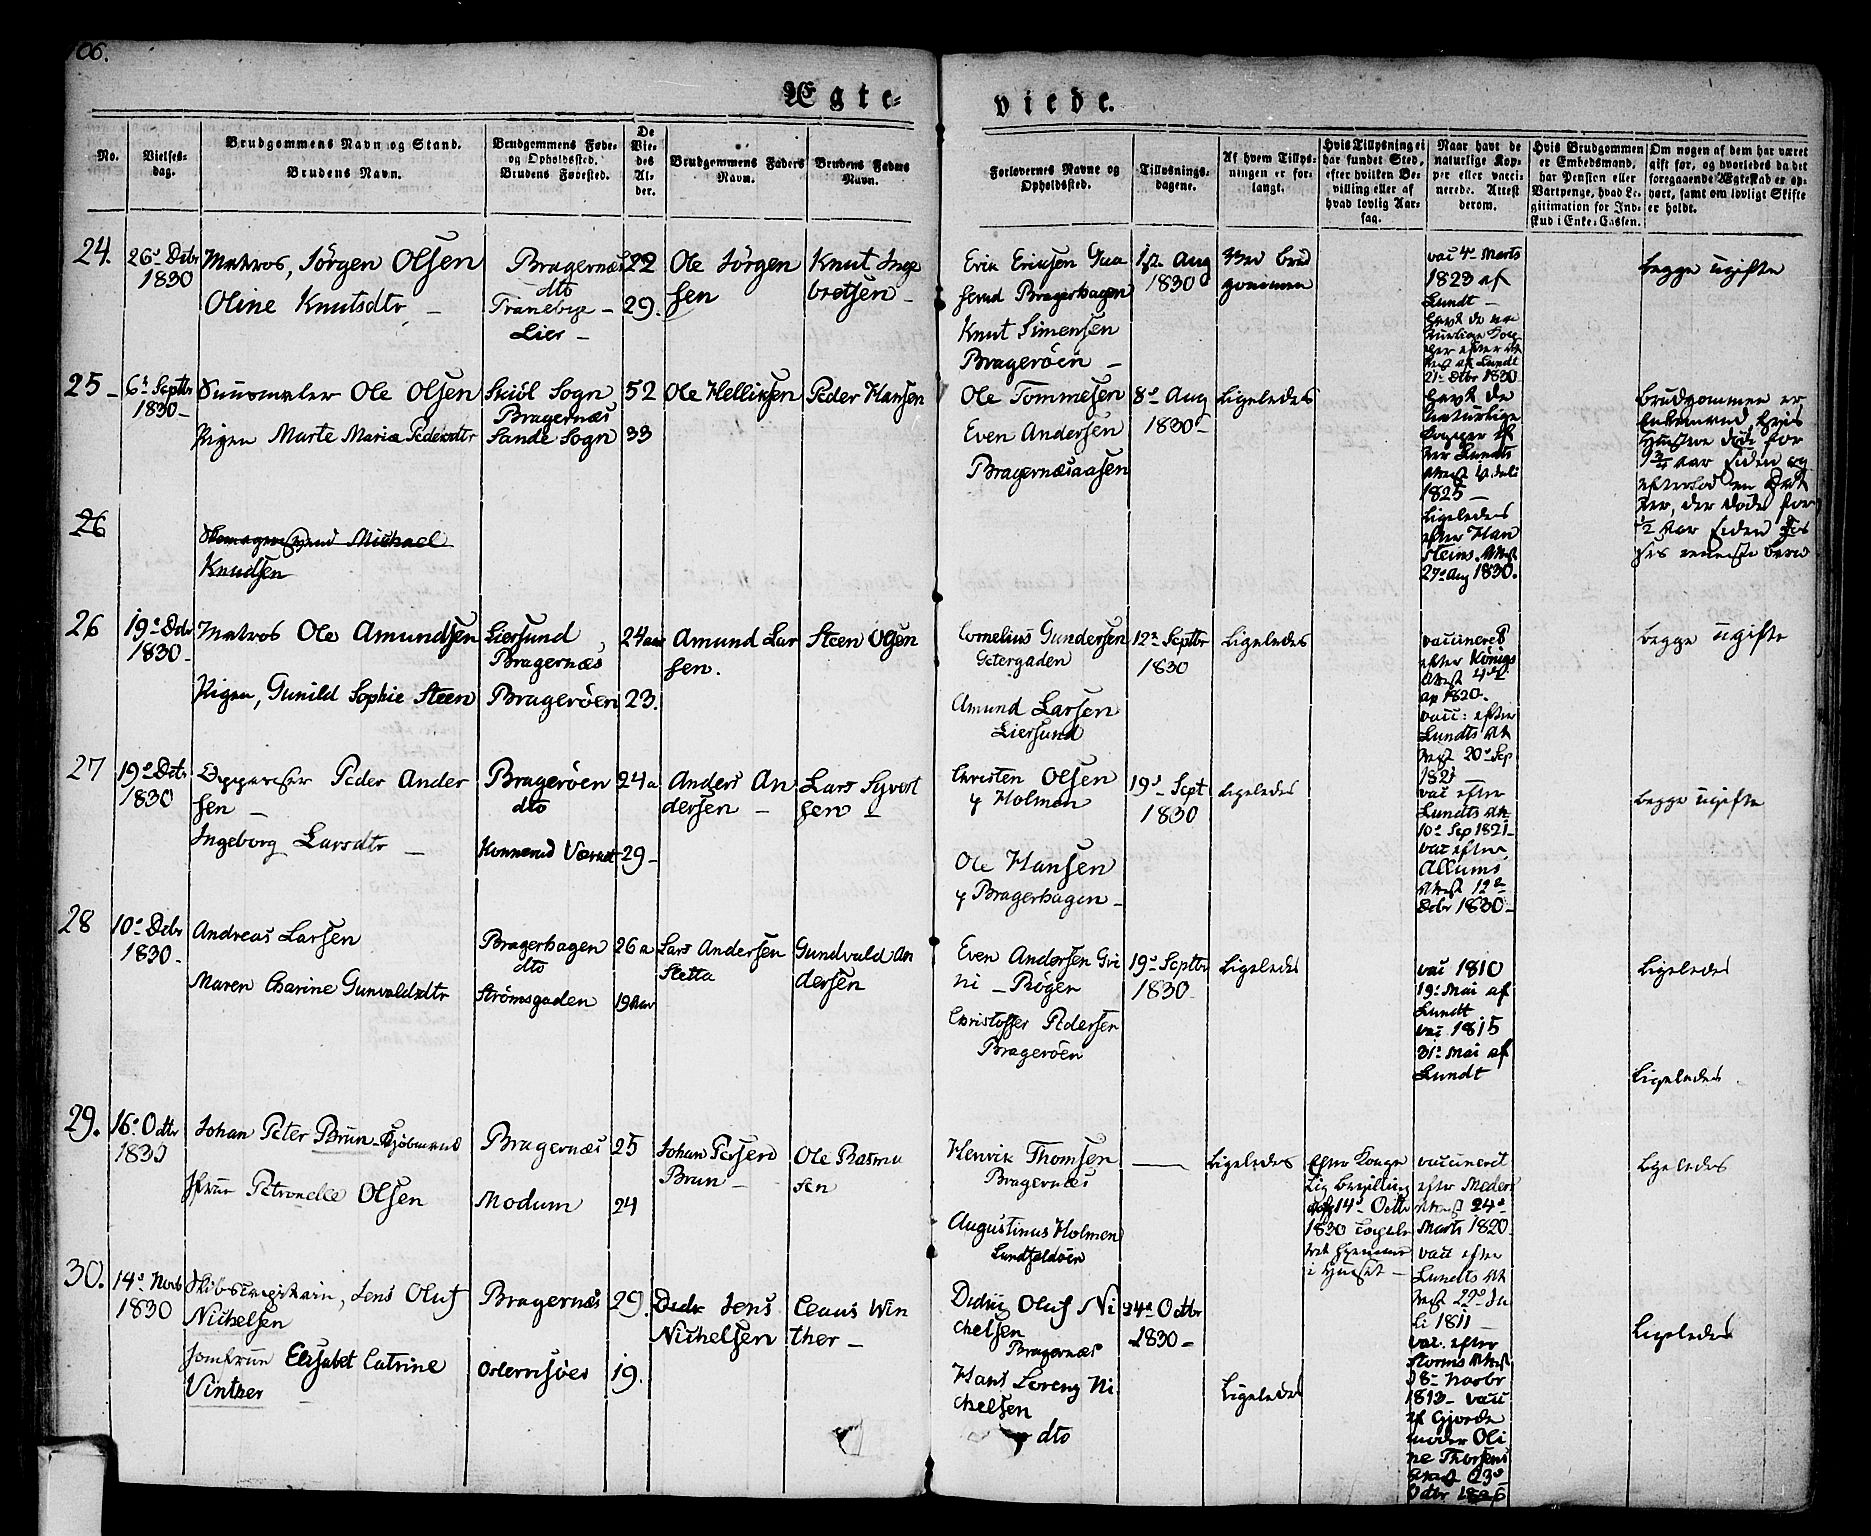 106.
Ægte-
viede.
No.
Vielses-
dag.
Brudgommens Navn og Stand.
Brudens Navn.
Brudgommens Føde-
og Opholdssted.
Brudens Fødested.
De
Vie-
des
Al-
der.
Brudgommens Faders
Navn.
Brudens Faders
Navn.
Forlovernes Navne og
Opholdssted.
Tillysnings-
dagene.
Af hvem Tillys-
ningen er for-
langt.
Hvis Tillysning ei
har fundet Sted,
efter hvilken Be-
villing eller af
hvad lovlig Aar-
sag.
Naar havt de
naturlige Kop-
per eller vacci-
nerede. Attest
derom.
Hvis Brudgommen
er Embedsmand,
har Pension eller
Vartpenge, hvad Le-
gitimation for Ind-
skud i Enke-Cassen.
Om nogen af dem har været
gift før, og hvorledes da det
foregaaende Ægteskab er op-
hørt, samt om lovligt Skifte
er holdt.
24.
26de Decbr
1830
Matros, Jörgen Olsen
Oline Knutsdtr
Bragernæs
dto
Tranebye
Lier
22
29.
Ole Jörgen
sen
Knut Inge
bretsen
Erik Eriksen Gaa
serud Bragerhagen
Knut Simensen
Brageröen
1ste Aug
1830
Ved Brud
gommen
vac 4de Marts
1823 af
Lundt
havt de na
turlige Kop
per efter At
test af Lundt
21de Dcbr 1830
begge ugifte
25
6te Septbr
1830
Huusmaler Ole Olsen
Pigen Marte Maria Pedersdtr
Skiöl Sogn
Bragernæs
Sande Sogn
52
33
Ole Hellissen
Peder Hansen
Ole Tommesen
Even Andersen
Bragernæsaasen
8de Aug
1830
Ligeledes
havt de
naturlige
Kopper ef
ter Lundts
Attest
1825
Ligeledes
efter Han
steins Attest
27de Aug 1830.
Brudgommen er
Enkemand hvis
Hustrue döde for
9 3/4 Aar siden og
efterlod en Dat
ter, der döde for
1/2 Aar siden
26
Skomagersvend Michael
Knudsen
26
19de Dcbr
1830
Matros Ole Amundsen
Pigen, Gunild Sophie Steen
Liersund
Bragernæs
Brageröen
24 aar
23.
Amund Lar
sen.
Steen Olsen
Cornelius Gundersen
Getergaden
Amund Larsen
Liersund
12te Septbr
1830
Ligeledes
vaccineret
efter Königs
Attest 4de
ap 1820
vacc: efter
Lundts At
test 20de Sep
1821
begge ugifte
27
19de Dcbr
1830
Opparser Peder Ander
sen
Ingeborg Larsdtr
Brageröen
dto
Konnerud
24 a
29
Anders An
dersen
Lars Syvert
sen
Christen Olsen
p Holmen
Ole Hansen
p Bragerhagen
19de Sept
1830
Ligeledes
vac efter
Lundts At
10de Sep 1821
vac efter
Allums
Attest 12te
Dcbr 1830
begge ugifte
28
10de Dcbr
1830
Andreas Larsen
Maren Charine Gunvaldsdtr
Bragerhagen
dto
Strömsgaden
26 a
19 Aar
Lars Andersen
Sletta
Gundvald An
dersen
Even Andersen Gri
ni Röger
Christoffer Pedersen
Brageröen
19de Septbr
1830
Ligeledes
vac 1810
19de Mai af
Lundt
vac 1815
31te Mai af
Lundt
Ligeledes
Ligeledes
29.
16de Octbr
1830
Johan Peter Brun Kjöbmand
Jfrue Petronelle Olsen
Bragernæs
Modum
25
24
Johan Petsen
Brun
Ole Rasmu
sen
Henrik Thomsen
Bragernæs
Augustinus Holmen
Lundfaldöen
Ligeledes
Efter Konge
lig Bevilling
af 14de Octbr
1830 copule
ret hjemme
i Huset
vaccineret
efter Meders
Attest 24de
Marts 1820
vacc efter
Lundts At
test 22de Ju
li 1811
Ligeledes
30.
14de Novb
1830
Skibscapitain, Jens Oluf
Nichelsen
Jomfrue Elisabet Catrine
Vinther
Bragernæs
Osterrisöer
29.
19.
Jens
Nichelsen
Claus Win
ther
Didrig Oluf Ni
chelsen
Bragernæs
Hans Lorenz Ni
chelsen
dto
24de Octbr
1830
Ligeledes
vac. efter
Storms Attest
18de Novbr
1813 vacc
af Gjorde
moder Oli
ne Thorsens
Attest 23de
Octbr 1826
Ligeledes